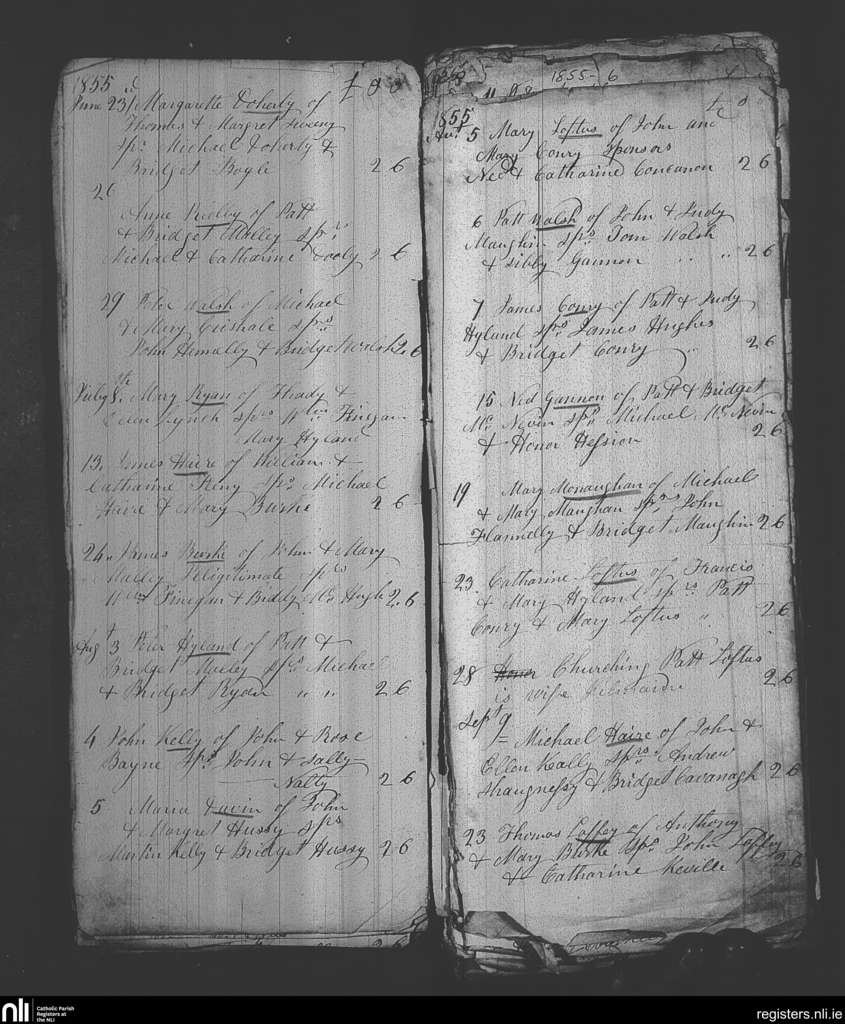 1855
£ s d
June 23 Margarette Doherty of
Thomas & Margret Sweeny
sps Michael Doherty &
Bridget Boyle 2 6
26
Anne Reilly of Patt
& Bridget Malley sprs
Michael & Catharine Dooly 2 6
29 Peter Walsh of Michael
& Mary sprs
John Hemally & Bridget Walsh 2.6
July 8th Mary Ryan of Thady &
Ellen Lynch sprs Wm Finegan
Mary Hyland
13. James Haire of William &
Catharine sps Michael
Haire & Mary Burke 2 6
24. James Burke of John & Mary
Malley Illigitimate sprs
Wm Finegan & Biddy Mc Hugh 2.6
Augt 3 Peter Hyland of Patt &
Bridget sps Michael
& Bridget Ryder " " 2 6
4 John Kelly of John & Rose
Bayne sps John & Sally
Nally 2 6
5 Maria of John
& Margret Hussy sprs
Martin Kelly & Bridget Hussy 2 6
1855-6
1855
£ s d
Augt 5 Mary Loftus of John and
Mary Conry Sponsors
Ned & Catharine Concanon 2 6
6 Patt Walsh of John & Judy
Maughin sps Tom Walsh
& Sibby Gannon " " 2 6
7 James Conry of Patt & Judy
Hyland sps James Hughes
& Bridget Conry " 2 6
15 Ned Gannon of Patt & Bridget
Mc Nevin sps Michael Mc Nevin
& Honor Hession 2 6
19 Mary Monaughan of Michael
& Mary Maughan sprs John
Flannelly & Bridget Maughin 2 6
23 Catharine Loftus of Francis
& Mary Hyland sprs Patt
Conry & Mary Loftus " 2 6
28 Honor Churching Patt Loftus
is wife 2 6
Sept 9
Michael Haire of John &
Ellen Keally sprs Andrew
Shaugnessy & Bridget Cavanagh 2 6
23 Thomas Laffey of Anthony
& Mary Burke sps John Laffey
& Catharine Keville 2 6
nli
Catholic Parish
Registers at
the NLI
registers.nli.ie